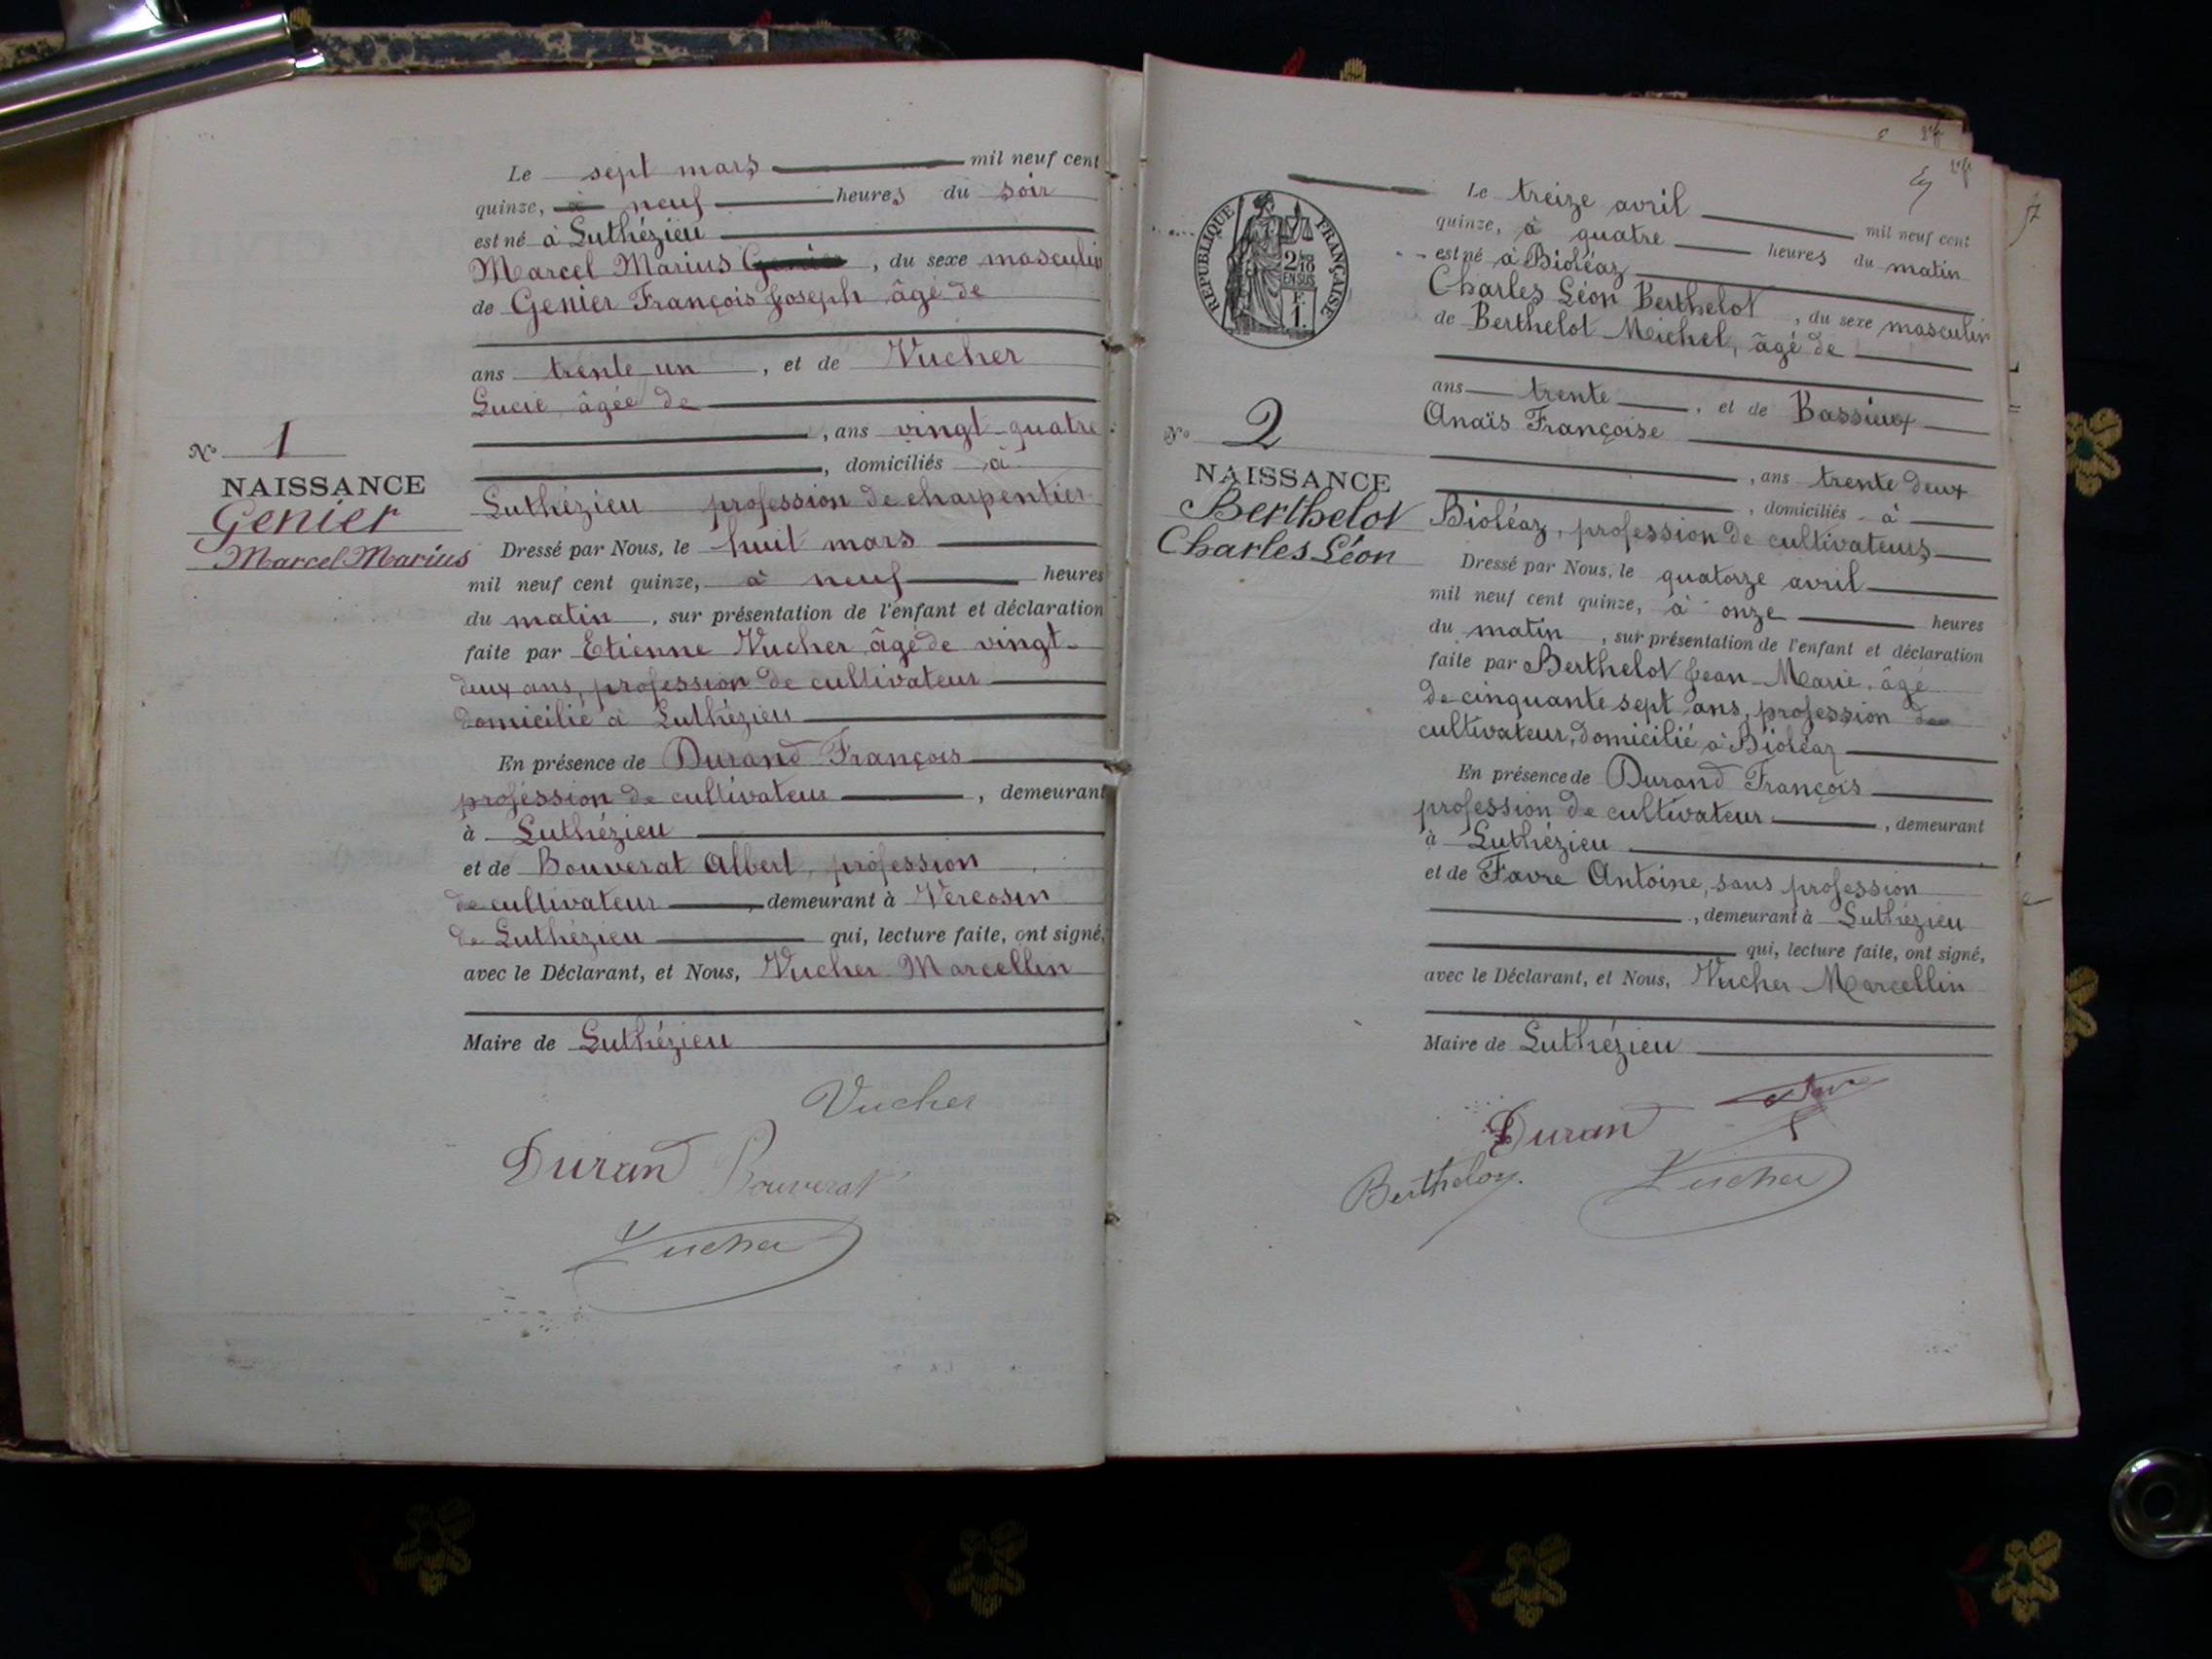 Le sept mars mil neuf cent
quinze, à neuf heures du soir
est né à Luthézieu
Marcel Marius Genier, du sexe masculin
de Genier François Joseph âgé de
ans trente un, et de Vucher
Lucie âgée de
, ans vingt-quatre
, domiciliés à
Luthézieu profession de charpentier
Dressé par Nous, le huit mars
mil neuf cent quinze, à neuf heures
du matin, sur présentation de l'enfant et déclaration
faite par Etienne Vucher âgé de vingt-
deux ans, profession de cultivateur
domicilié à Luthézieu
En présence de Durand François
profession de cultivateur, demeurant
à Luthézieu
et de Bouverat Albert, profession
de cultivateur, demeurant à Vercosin
de Luthézieu qui, lecture faite, ont signé,
avec le Déclarant, et Nous, Vucher Marcellin
Maire de Luthézieu
N° 1
NAISSANCE
Genier
Marcel Marius
Vucher
Durand Bouverat
Vucher
RÉPUBLIQUE FRANÇAISE
2/10
EN SUS
F.
1.
Le treize avril mil neuf cent
quinze, à quatre heures du matin
est né à Bioléaz
Charles Léon Berthelot, du sexe masculin
de Berthelot Michel, âgé de
ans trente, et de Bassieux
Anaïs Françoise
, ans trente deux
, domiciliés à
Bioléaz, profession de cultivateurs
Dressé par Nous, le quatorze avril
mil neuf cent quinze, à onze heures
du matin, sur présentation de l'enfant et déclaration
faite par Berthelot Jean-Marie, âgé
de cinquante sept ans, profession de
cultivateur, domicilié à Bioléaz
En présence de Durand François
profession de cultivateur, demeurant
à Luthézieu
et de Favre Antoine, sans profession
, demeurant à Luthézieu
qui, lecture faite, ont signé,
avec le Déclarant, et Nous, Vucher Marcellin
Maire de Luthézieu
N° 2
NAISSANCE
Berthelot
Charles Léon
Duran Favre
Berthelot Vucher